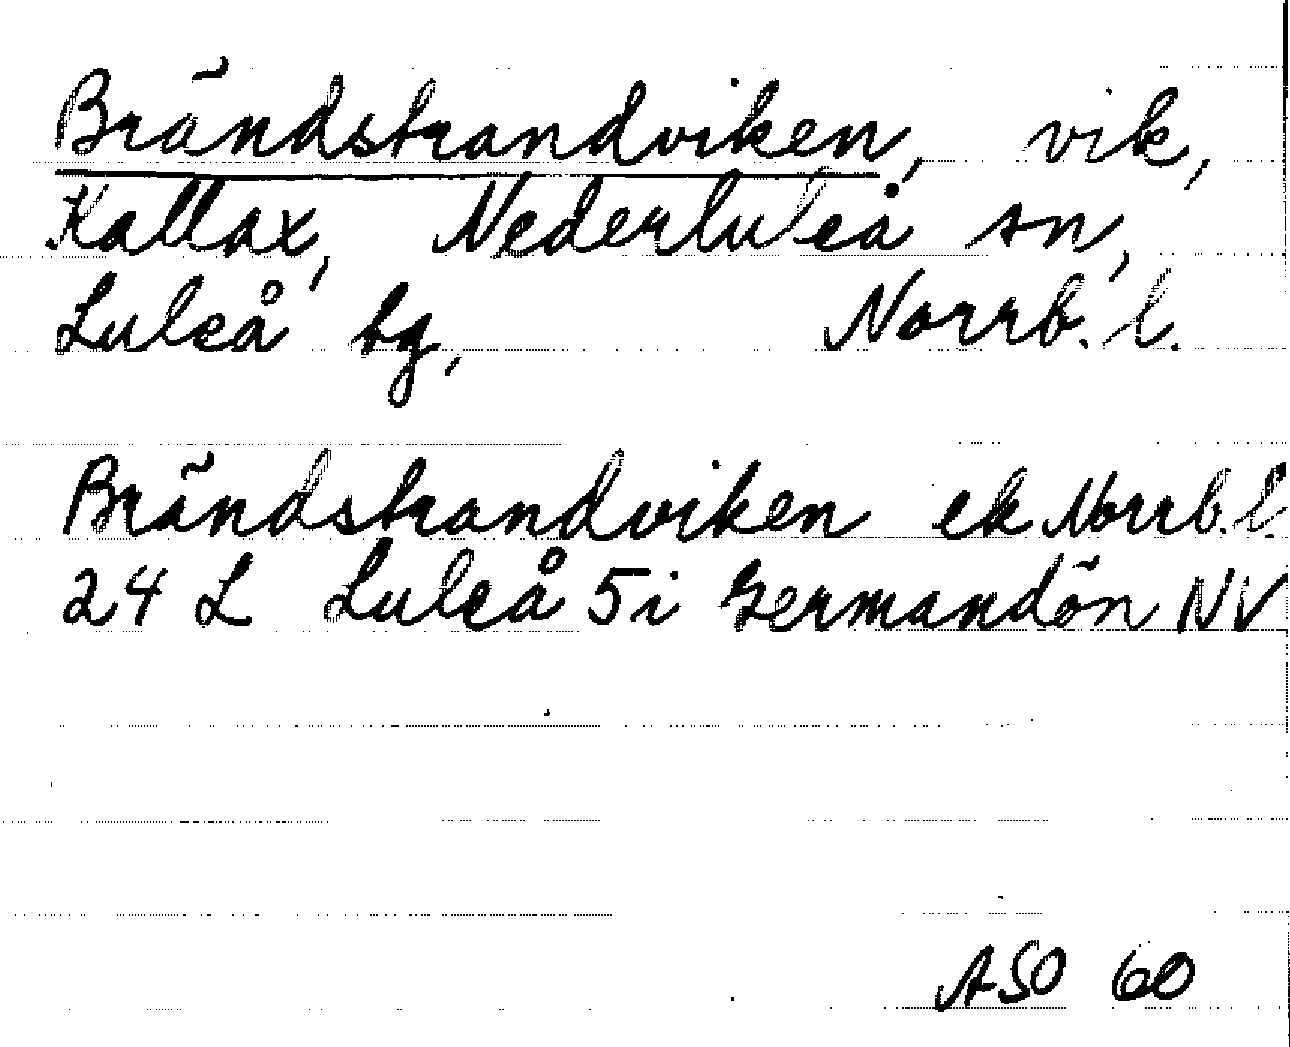 Brändstrandviken, vik,
Kallax, Nederluleå sn,
Luleå bg, Norrb. l.
Brändstrandviken ek Norrb. l.
24 L Luleå 5i Germandön NV
ASO 60